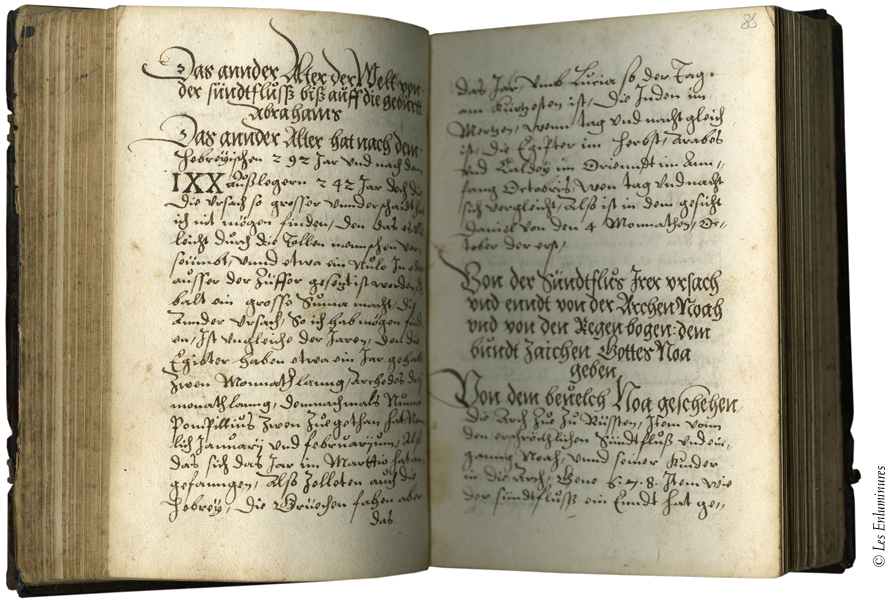 Das annder Alter der Welt von
der sündtfluß biß auff die geburtt
Abrahams
Das annder Alter hat nach dem
Hebreyischen 292 Jar und nach den
IXX außlegern 242 Jar doch die
die ursach so grosser unnderschaidt
ich nit mögen finden, Den das es
leicht durch die Tollen mennschen ver,
seümbt, unnd etwa ein Nulo In oder
ausser der Züffer gesetzt ist worden,
balt ein grosse Suma macht, Die
Annder ursach, So ich hab mögen find
en, Ist ungleiche der Jaren, Den die
Egipter haben etwa ein Jar gehabt
Zwen Monnath lanng, Archades drey
monath lanng, demnachmals Numa
Pompillius Zwen Zuegethan hat Nem
lich Januarij und februarijum, Also
das sich das Jar im Marttio hat an
gefanngen, Also Zelleten auch die
Hebrey, Die Grüechen fahen aber
das
86
das Jar, umb Lucia so der Tag
am kurtzesten ist, Die Juden im
Mertzen, wenn tag und nacht gleich
ist, Die Egipter im Herbst, Arabes
und Caldey im Orienndt im Ann,
fang Octobris, wen tag und nacht
sich vergleicht, Also ist in dem gesicht
Daniel von den 4 Monnathen, Oc,
tober der erst,
Von der Sündtflus Irer ursach
und enndt von der Archen Noah
und von den Regen bogen: dem
bundt Zaichen Gottes Noa
geben
Von dem bevelch Noa geschehen
die Arch Zue Zu Rüssten, Item vom
den erschröcklichen Sündtfluß und ein,
ganng Noah, unnd seiner Kinder
in die Arch, Gene 6. 7. 8. Item wie
der sündtfluß ein Enndt hat ge,,
© Les Enluminures